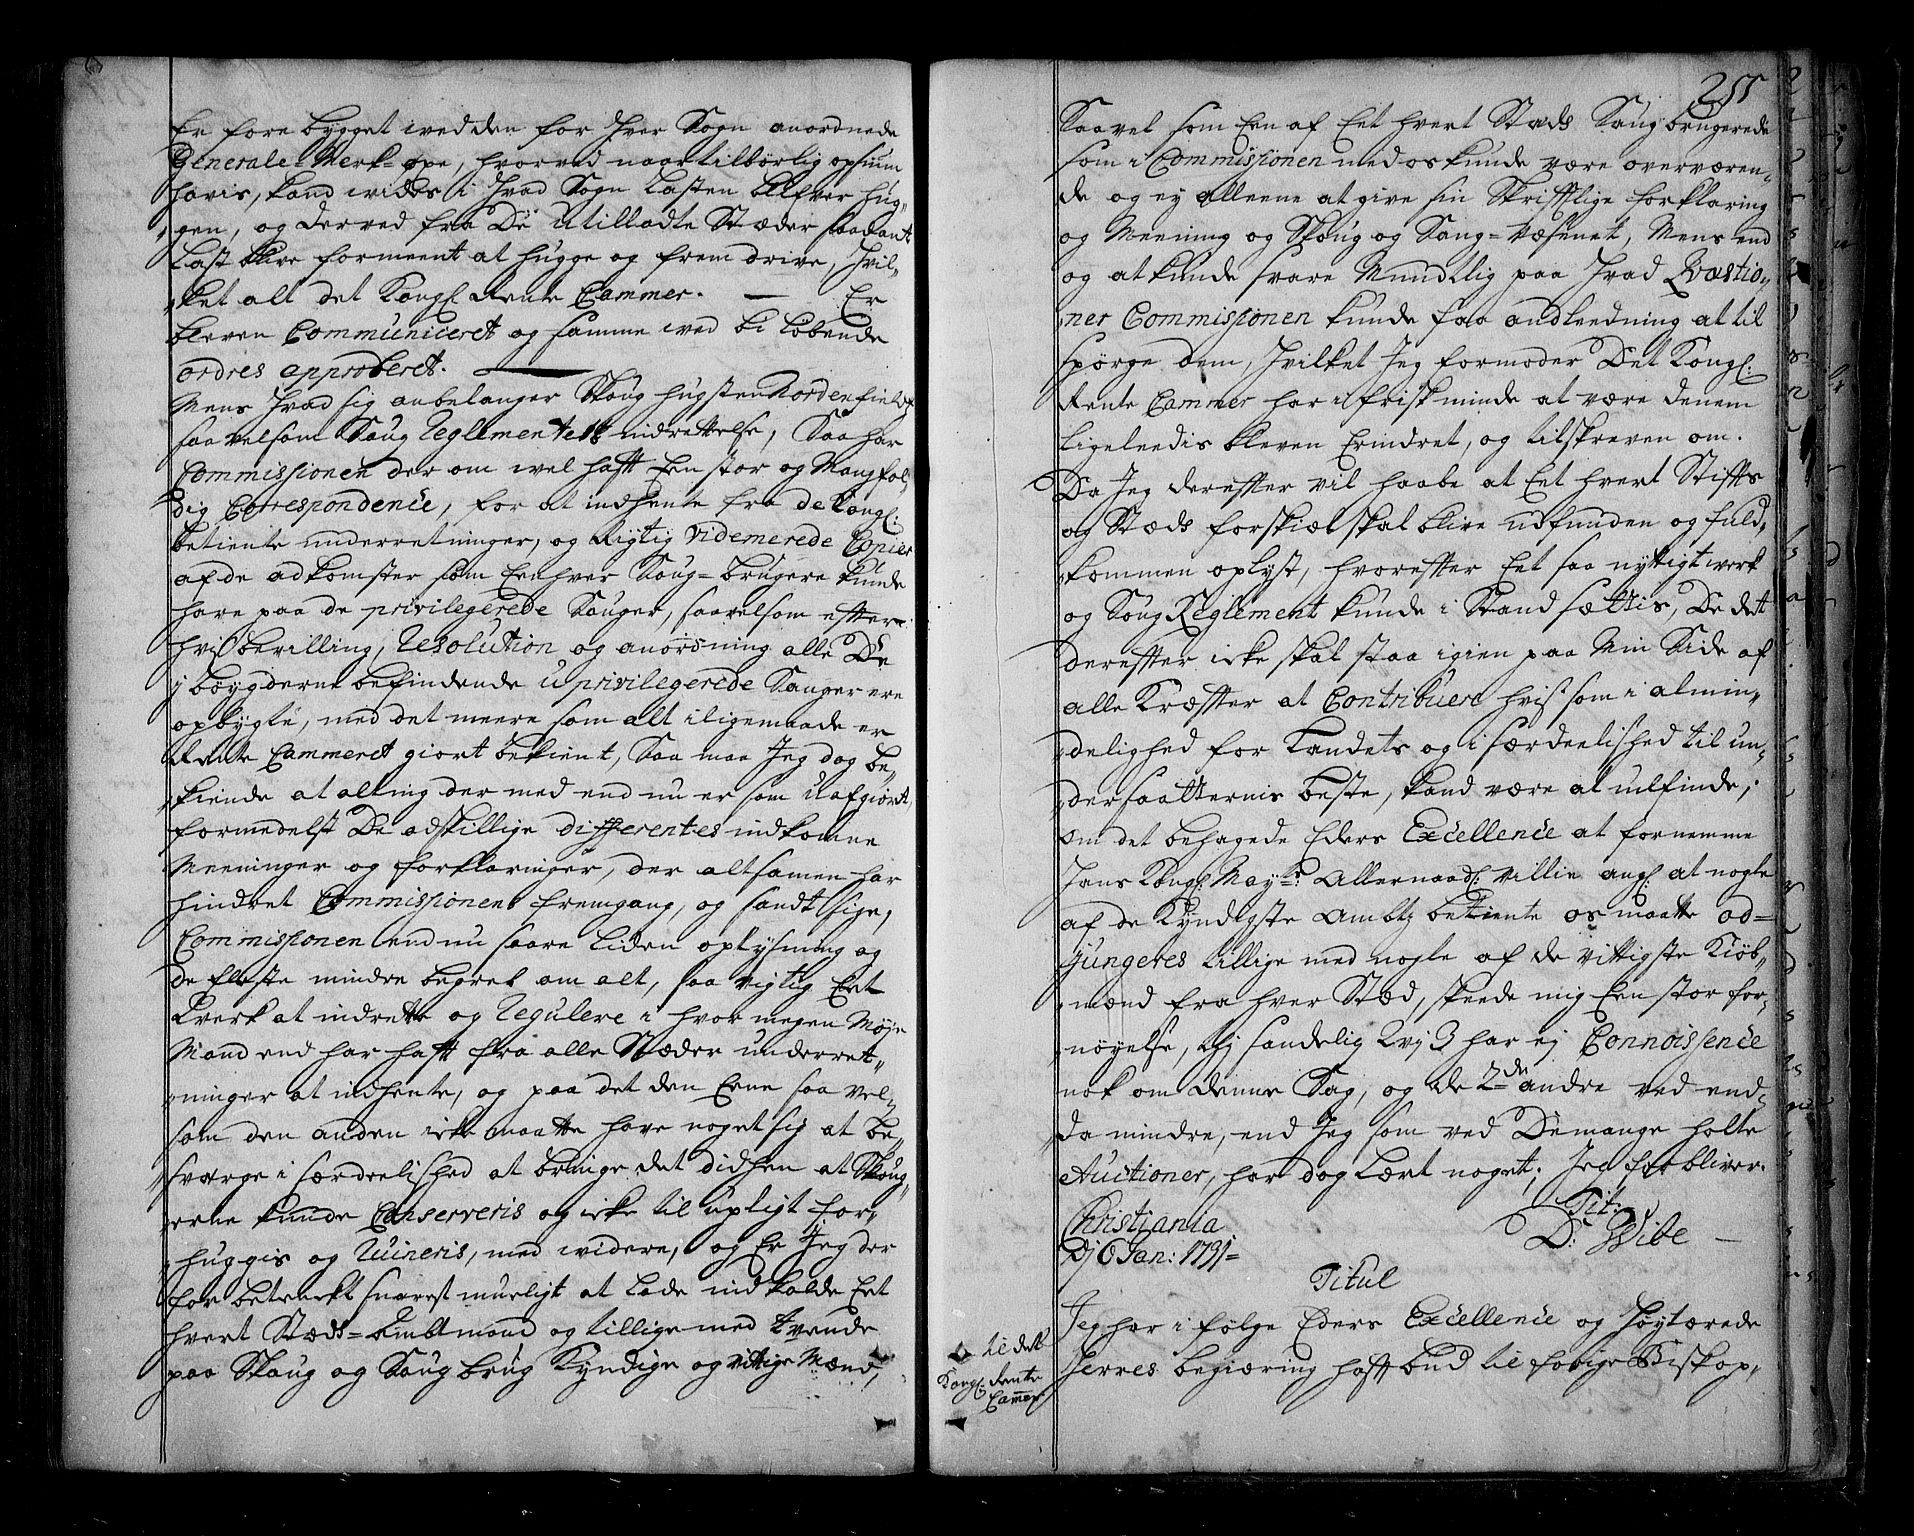 Er fore bygget wed den for Hver Sogn anordnede
Generale-Merk-øxe, hvorved naar tilbørlig opsiun
havis, kand wides i Hvad Sogn Lasten blifver hug-
gen, og derved fra De utilladte Stæder saadant
Last blive formeent at hugge og frem drive, Hvil-
ket alt det Kongl: Rente Cammer. — Er
bleven Communiceret og samme wed bi løbende
ordres approberet. —
Mens Hvad sig anbelanger Skoug hugsten Nordenfields
saa velsom Saug Reglementets indrettelse, Saa har
Commissionen der om wel hafft Een stor og Mangfol-
dig Correspondence, for at indhente fra de Kongl:
betiente underretninger, og Rigtig Videmerede Copier
af de adkomster som Eenhver Saug-brugere kunde
have paa de privilegerede Sauger, saavelsom effter
hvis bevilling, Resolution og anordning alle De
j bøygderne befindende uprivilegerede Sauger ere
opbygte, med det meere som alt i ligemaade er
Rente Cammeret giort bekient, Saa maa Jeg dog be-
kiende at alting der med end nu er som uafgiordt,
formedelst De adskillige differentes indkomne
Meeninger og forklaringer, der altsamen har
hindret Commissionens fremgang, og sandt sige,
Commissionen end nu saare liden oplysning og
de fleste mindre begreb om alt, saa vigtig Eet
Verk at indrette og Regulere i hvor megen Møye
Mand end har hafft fra alle Stæder underret-
ninger at indhente, og paa det den Eene saa vel-
som den anden icke maatte have noget sig at be-
sværge i særdeelished at bringe det didhen at Skoug-
erne kunde Conserveris og icke til upligt for-
huggis og Ruineris, med widere, og Er Jeg der
for betenckt snarest mueligt at lade ind kalde Eet
hvert Stæds-Ambtmand og tillige med tvende
paa Skoug og Saug brug Kyndige og vittige Mænd,
255
Saavel som Een af Eet hvert Stæds Saug brugerede
som i Commissionen med os kunde være overværen-
de og ey alleene at give sin Skrifftlige forklaring
og Meening og Skoug og Saug-Væsenet, Mens end
og at kunde svare Mundtlig paa Hvad Qvæstio-
ner Commissionen kunde faa andleedning at til
spørge dem, Hvilket Jeg formoder Det Kongl:
Rente Cammer har i frisk minde at være denem
ligeleedis bleven Erindret, og tilskreven om.
Da Jeg dereffter vil haabe at Eet hvert Stiffts
og Stæds forskiæl skal blive udfunden og fuld-
kommen oplyst, hvoreffter Eet saa nyttigt werk
og Saug Reglement kunde i Stand sættis, De det
dereffter icke skal staa igien paa Min Side af
alle Kræffter at Contribuere hvis som i almin-
delighed for Landets og i særdeelished til un-
dersaatternis beste, kand være at udfinde;
om det behagede Eders Excellence at fornemme
Hans Kongl: Mayts: Allernaadl: Villie angl: at nogle
af de Kyndigste Ambtz betiente os maatte ad-
jungeres tillige med nogle af de vittigste Kiøb-
mænd fra hver Stæd, skeede mig Een stor for-
nøyelse, thj sandelig Vvj 3 har ej Connoissence
nok om denne Sag, og de 2de andre ved end-
da mindre, end Jeg som ved De mange holte
Auctioner, har dog lært noget; Jeg forbliver.
Christjania
Dj 6 Jan: 1731 =
Tit:
D: Wibe —
Titul
til det
Kongl: Rente
Cammer
Jeg har i følge Eders Excellence og Høytærede
Herres begiæring hafft bud til forige Biskop,